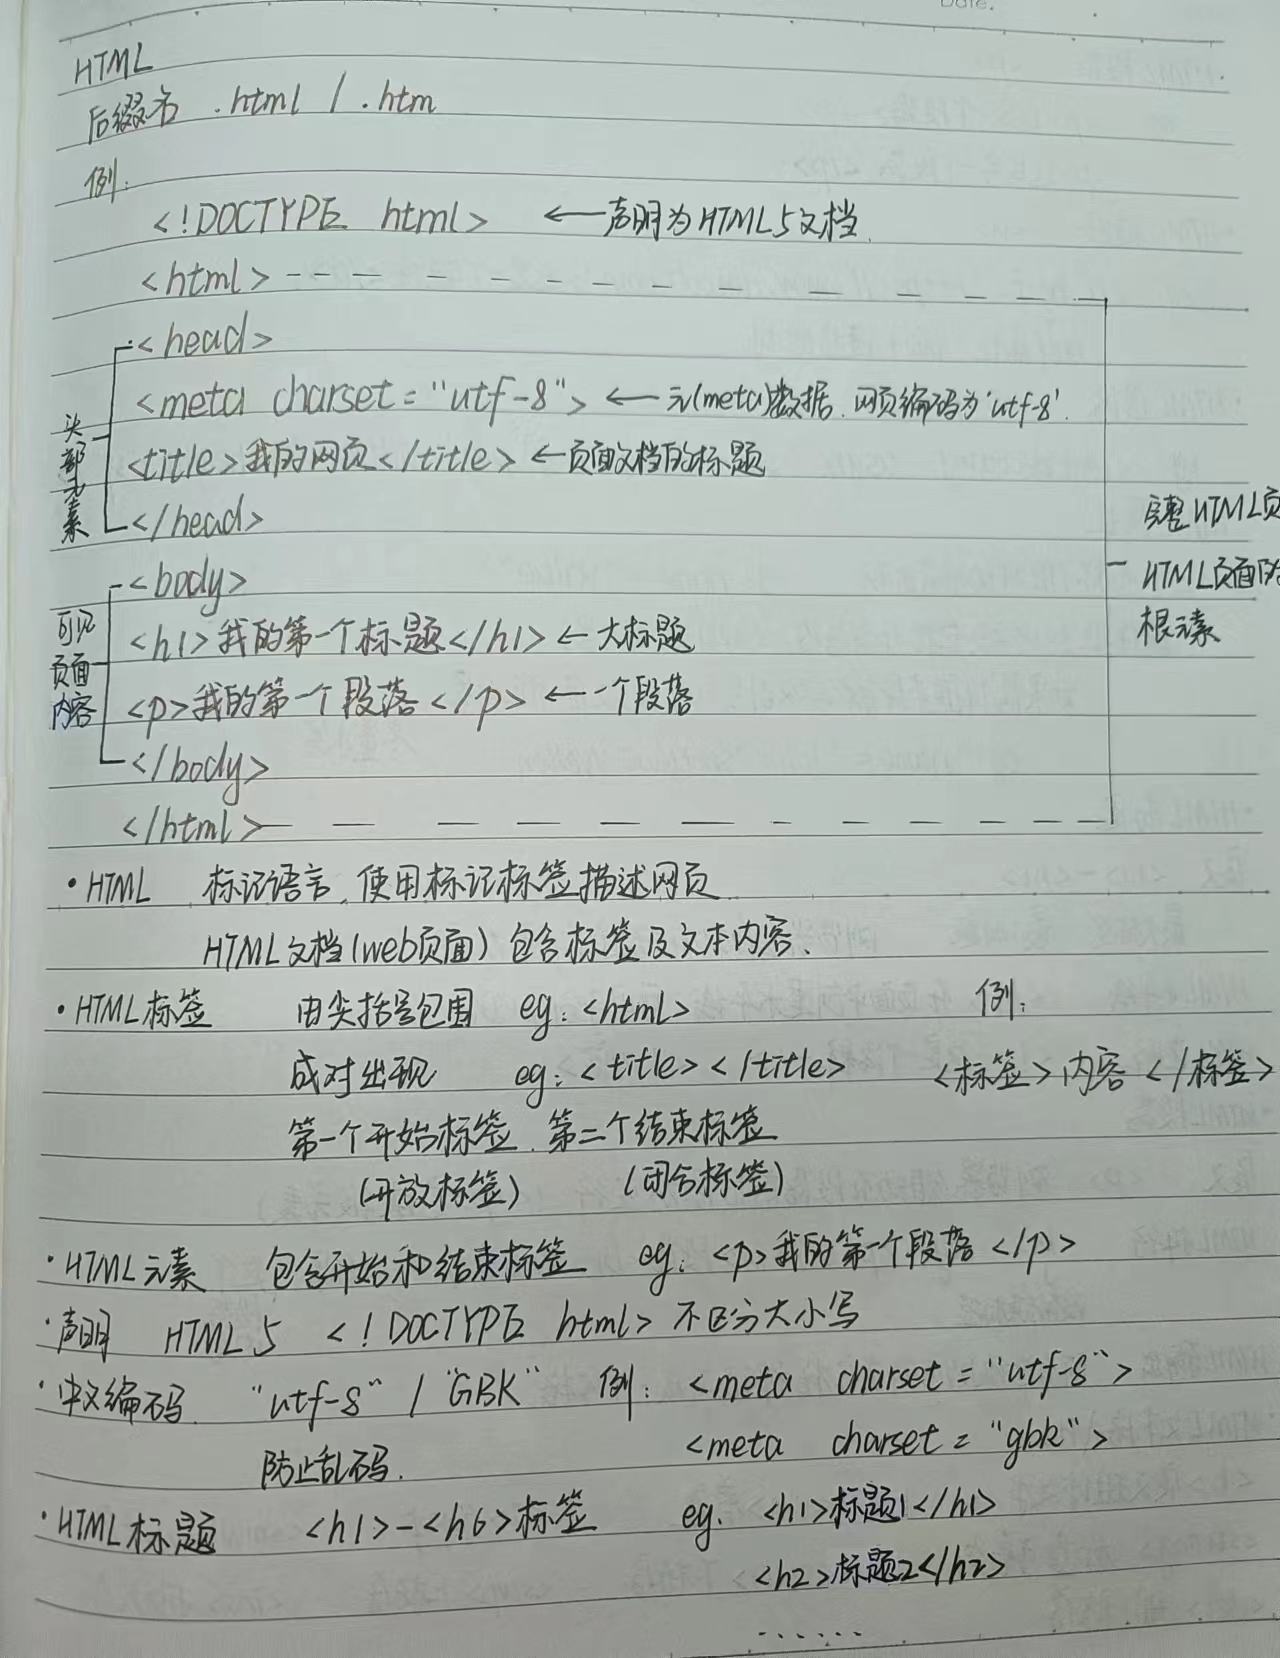 Date.
HTML
后缀名 .html / .htm
例:
<!DOCTYPE html> ←声明为HTML5文档.
<html>
<head>
<meta charset="utf-8"> ← 元(meta)数据.网页编码为'utf-8'.
<title>我的网页</title> ←页面文档的标题
</head>
头部元素
<body>
<h1>我的第一个标题</h1> ← 大标题
<p>我的第一个段落</p> ← 一个段落
</body>
可见
页面
内容
</html>
完整HTML页
HTML页面的
根元素
·HTML 标记语言.使用标记标签描述网页
HTML文档(web页面)包含标签及文本内容.
·HTML标签 由尖括号包围 eg:<html> 例:
成对出现 eg:<title></title> <标签>内容</标签>
第一个开始标签.第二个结束标签
(开放标签) (闭合标签)
·HTML元素 包含开始和结束标签 eg:<p>我的第一个段落</p>
·声明 HTML5 <!DOCTYPE html>不区分大小写
·中文编码 "utf-8" / "GBK" 例:<meta charset="utf-8">
防止乱码. <meta charset="gbk">
·HTML标题 <h1>-<h6>标签 eg.<h1>标题1</h1>
<h2>标题2</h2>
......